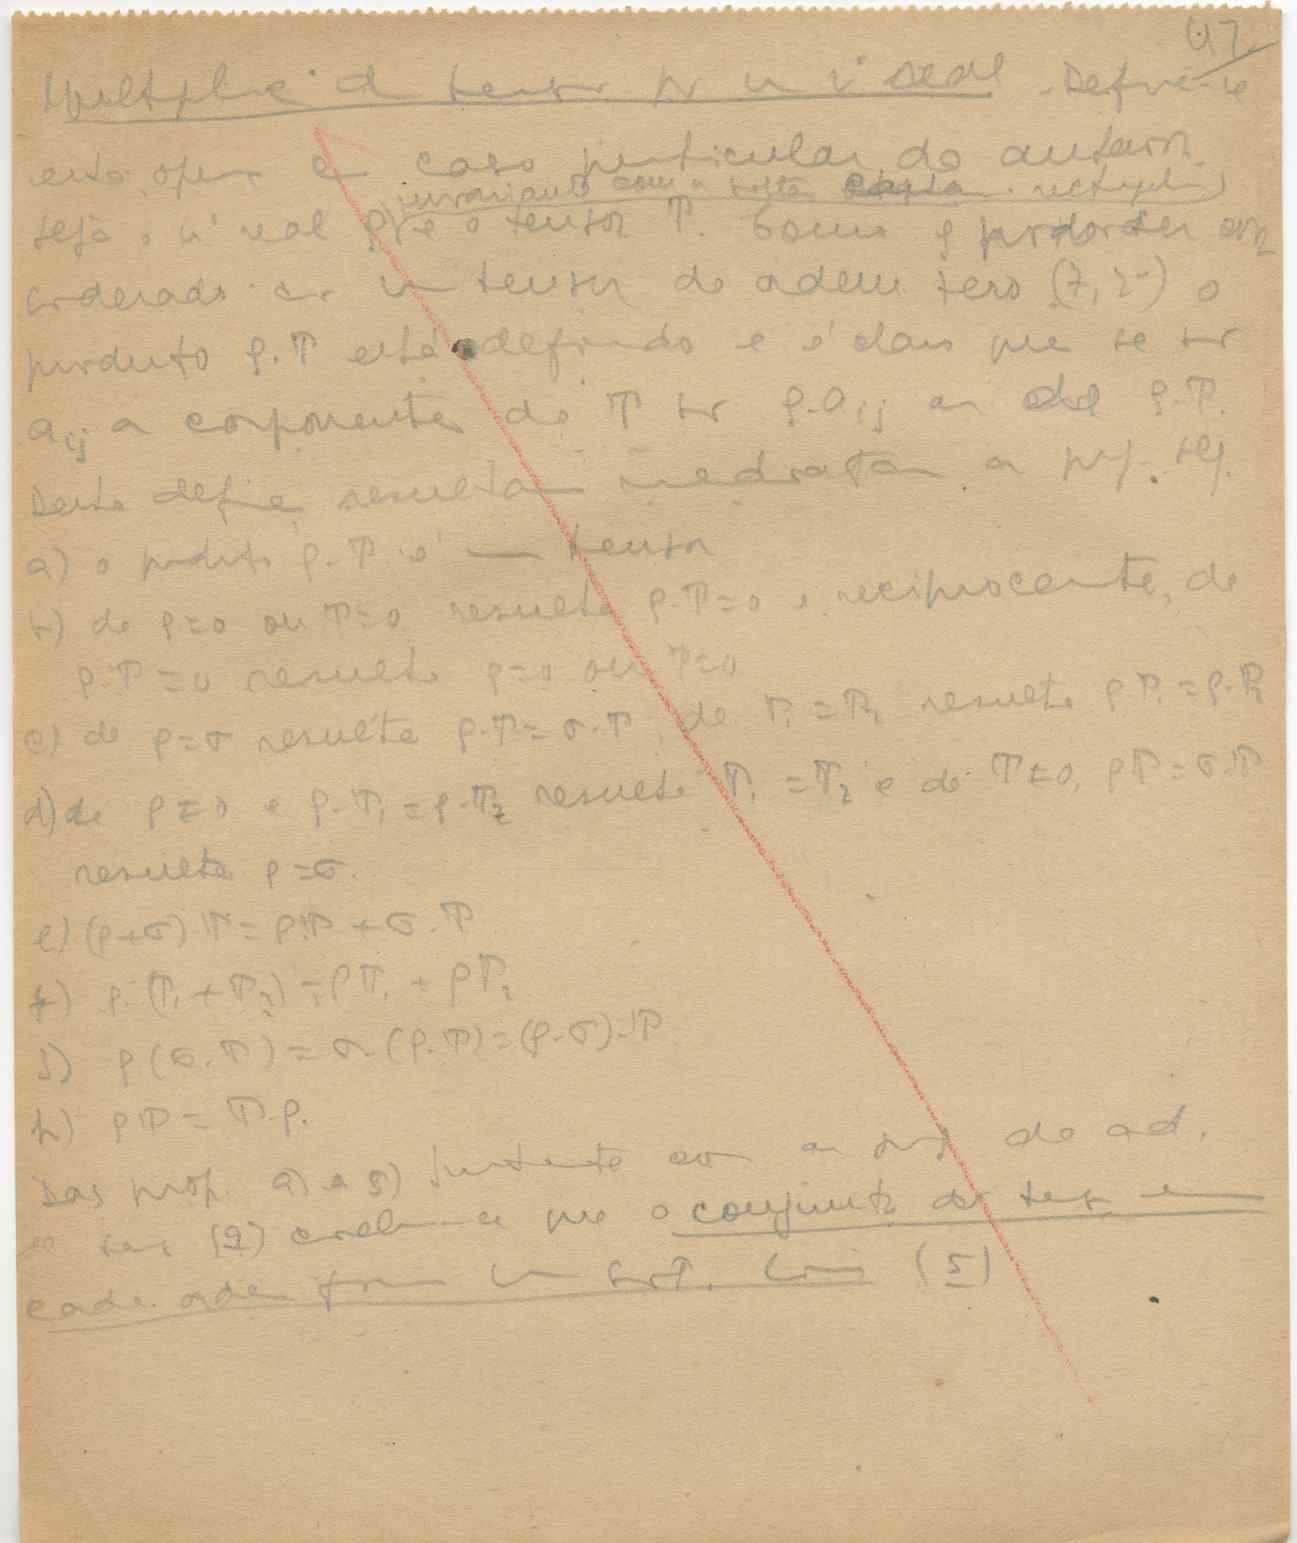 47
Multiplic de tensor por um nº real. Define-se
esta oper como caso particular do anterior.
invariante com a rectangul)
Seja o nº real ρ e o tensor T. Como ρ pode ser con
siderado como um tensor de ordem zero (7, 2º) o
produto ρ.T está definido e é claro que se são
aij as componentes de T são ρ.aij as de ρ.T.
Desta definição resultam imediatam as prop. seg.
a) o produto ρ.T é um tensor
b) de ρ=0 ou T=0 resulta ρ.T=0 e, reciprocamente, de
ρ.T=0 resulta ρ=0 ou T=0
c) de ρ=σ resulta ρ.T=σ.T; de T1=T2 resulta ρ.T1=ρ.T2
d) de ρ≠0 e ρ.T1=ρ.T2 resulta T1=T2 e de T≠0, ρT=σ.T
resulta ρ=σ.
e) (ρ+σ)T=ρ.T+σ.T
f) ρ.(T1+T2)=ρT1+ρT2
g) ρ(σ.T)=σ.(ρ.T)=(ρ.σ).T
h) ρT=T.ρ.
Das prop. a) a g) juntamente com as prop de ad.
de tens (2) conclui-se que o conjunto dos tens em
cada ordem forma um (5)